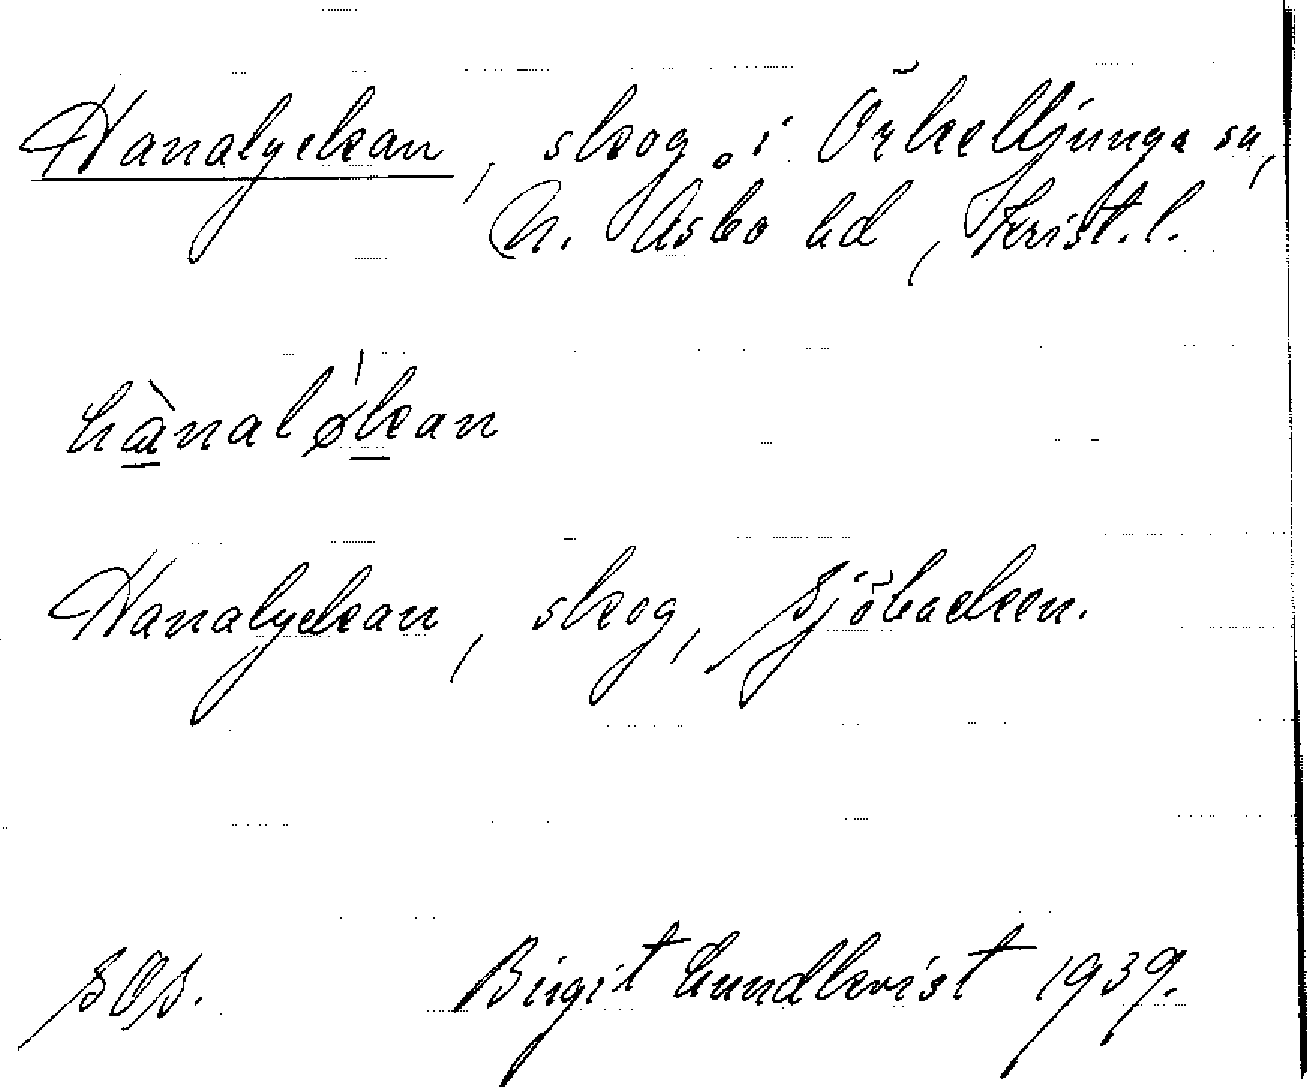 Hanalyckan, skog i Örkelljunga sn,
N. Åsbo hd, Krist. l.
hànalø'kan
Hanalyckan, skog, Sjöbacken.
SOS. Birgit Lundkvist 1939.